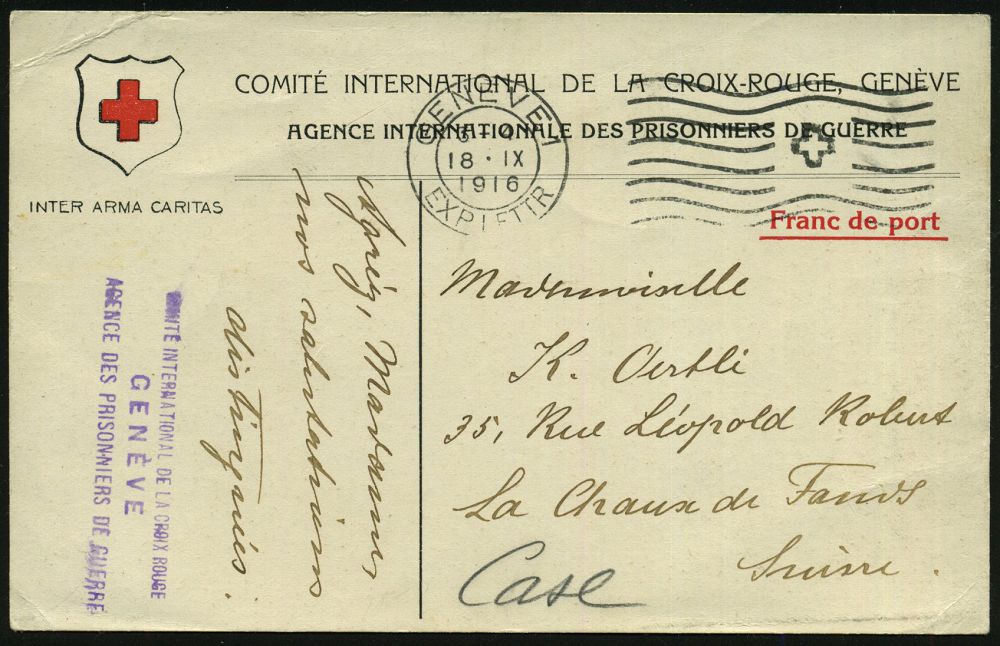 COMITÉ INTERNATIONAL DE LA CROIX-ROUGE, GENÈVE
AGENCE INTERNATIONALE DES PRISONNIERS DE GUERRE
INTER ARMA CARITAS
GENÈVE 1
18 · IX
1916
EXP. LETTR
Franc de port
Mademoiselle
K. Oertli
35, Rue Léopold Robert
La Chaux de Fonds
Suisse.
Case
Madame
nos salutations
distinguées.
COMITÉ INTERNATIONAL DE LA CROIX ROUGE
GENÈVE
AGENCE DES PRISONNIERS DE GUERRE